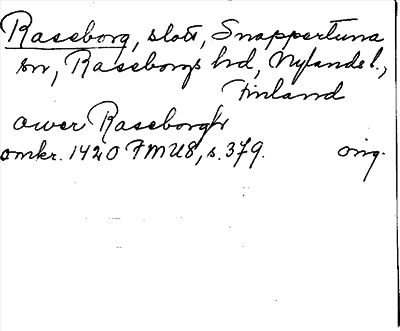 Raseborg, slott, Snappertuna
sn, Raseborgs hd, Nylands l.,
Finland
ower Raseborgh
omkr. 1420 FMU8, s. 379. orig.